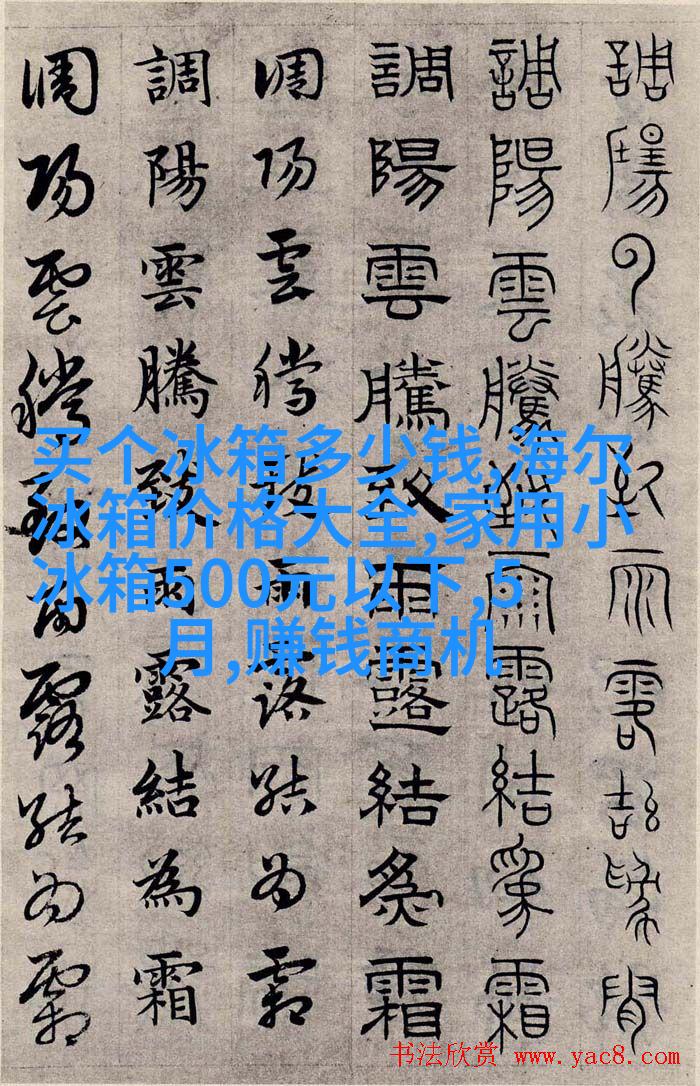 調陽雲騰致雨露結為霜
調陽雲騰致雨露結為霜
調陽雲騰致雨露結為霜
調陽雲騰致雨露結為霜
調陽雲騰致雨露結為霜
調陽雲騰致雨露結為霜
买个冰箱多少钱,海尔
冰箱价格大全,家用小
冰箱500元以下,5
月,赚钱商机
书法欣赏 www.yac8.com